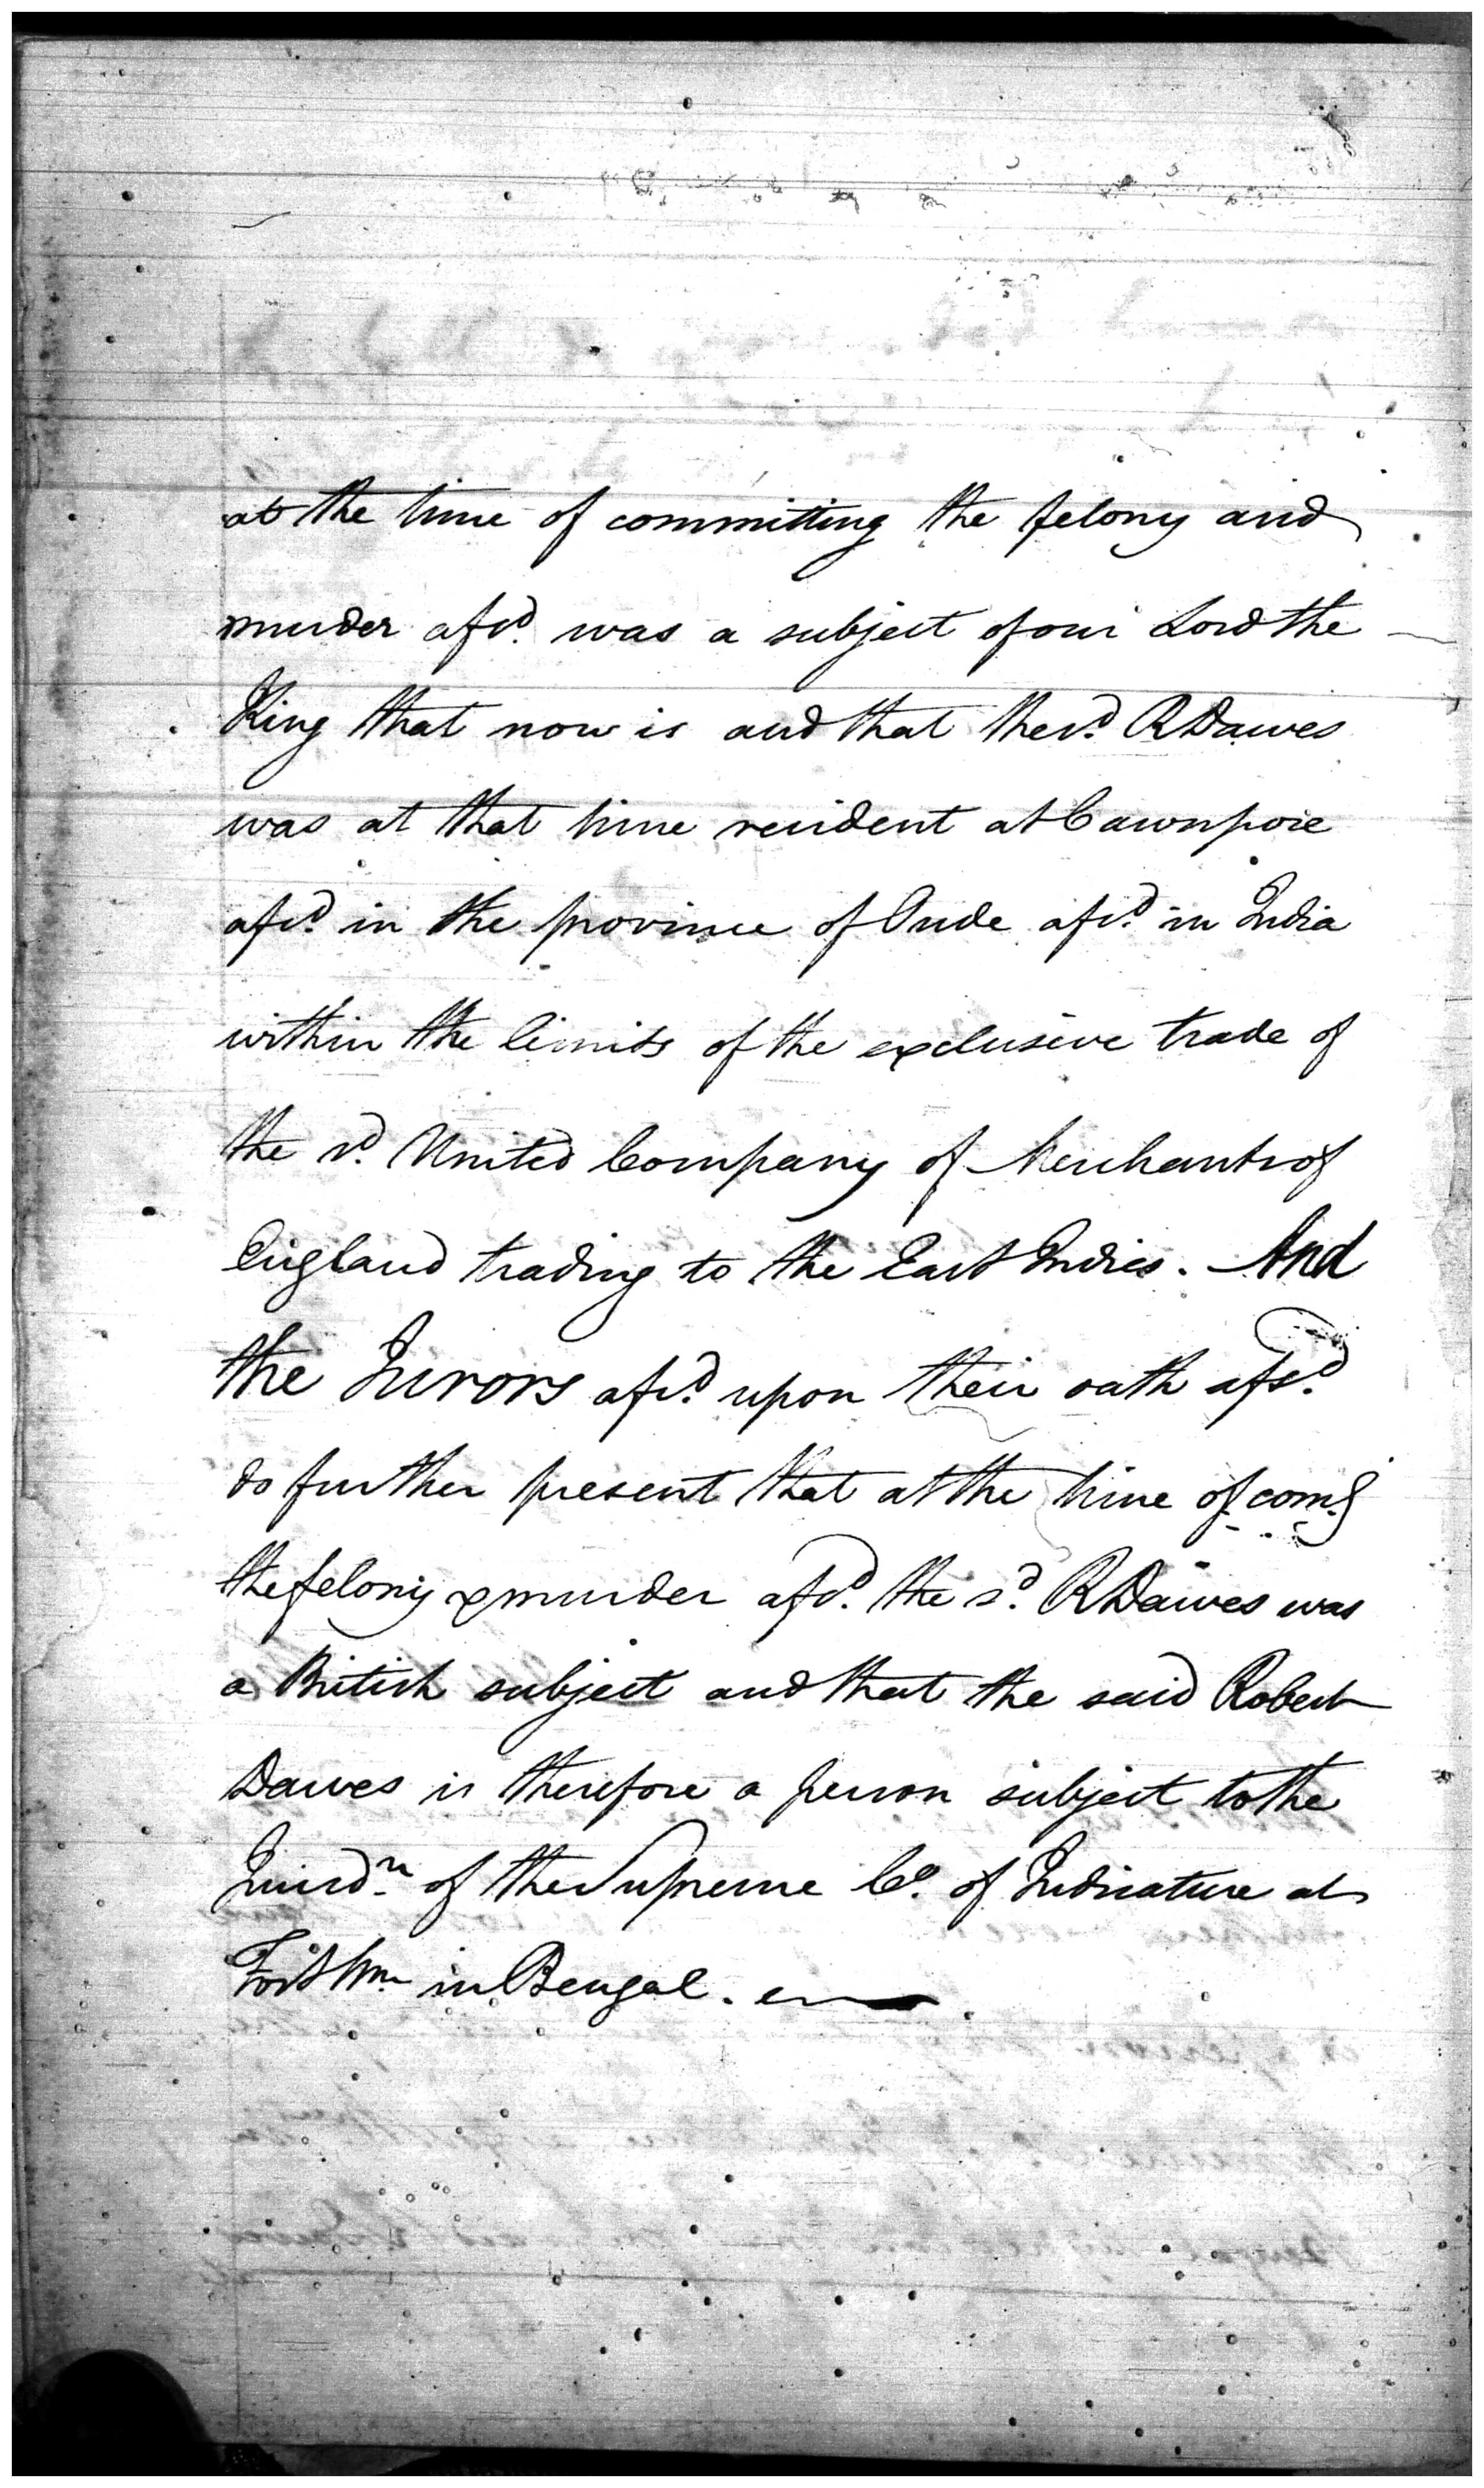 at the time of committing the felony and
murder afsd. was a subject of our Lord the
King that now is and that the sd. R Dawes
was at that time resident at Cawnpore
afsd. in the province of Oude afsd. in India
within the limits of the exclusive trade of
the sd. United Company of Merchants of
England trading to the East Indies. And
the Jurors afsd. upon their oath afsd.
do further present that at the time of comg
the felony & murder afsd. the sd. R Dawes was
a British subject and that the said Robert
Dawes is therefore a person subject to the
Jurisdn. of the Supreme Co. of Judicature at
Fort Wm. in Bengal.